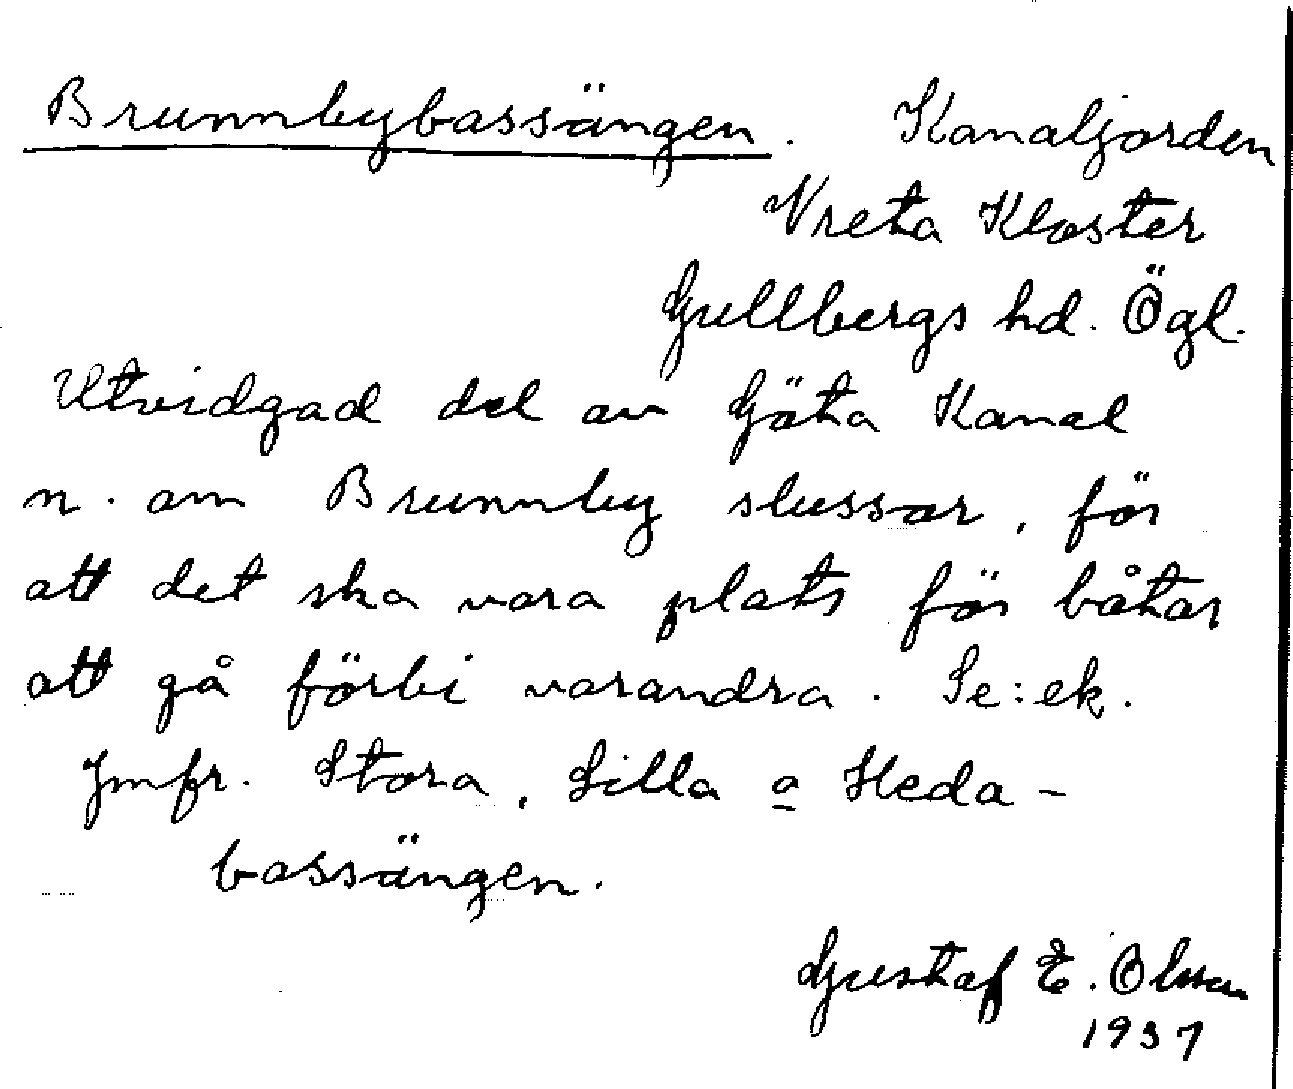 Brunnbybassängen. Kanaljorden
Vreta Kloster
Gullbergs hd. Ögl.
Utvidgad del av Göta Kanal
n. om Brunnby slussar, för
att det ska vara plats för båtar
att gå förbi varandra. Se: ek.
Jmfr. Stora, Lilla o Heda-
bassängen.
Gustaf E. Olsson
1937